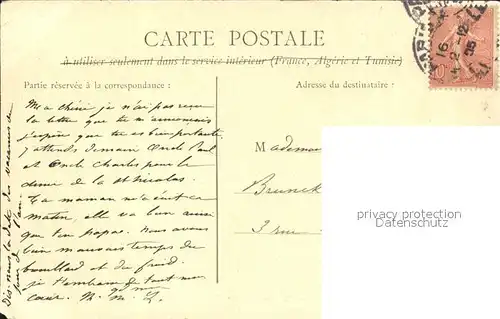 CARTE POSTALE
à utiliser seulement dans le service intérieur (France, Algérie et Tunisie)
Partie réservée à la correspondance :
Adresse du destinataire :
Ma chérie je n'ai pas reçu
la lettre que tu m'annonçais
j'espère que tu es bien portante
j'attends demain Oncle Paul
et Oncle Charles pour le
diner de la St Nicolas.
Ta maman m'a écrit ce
matin, elle va bien ainsi
que ton papa. Nous avons
bien mauvais temps du
brouillard et du froid.
je t'embrasse de tout mon
cœur.
Dis-nous la date des vacances du
jour de l'an.
M
Brunck
3 rue
privacy protection
VINTAGE-POSTCARDS.COM